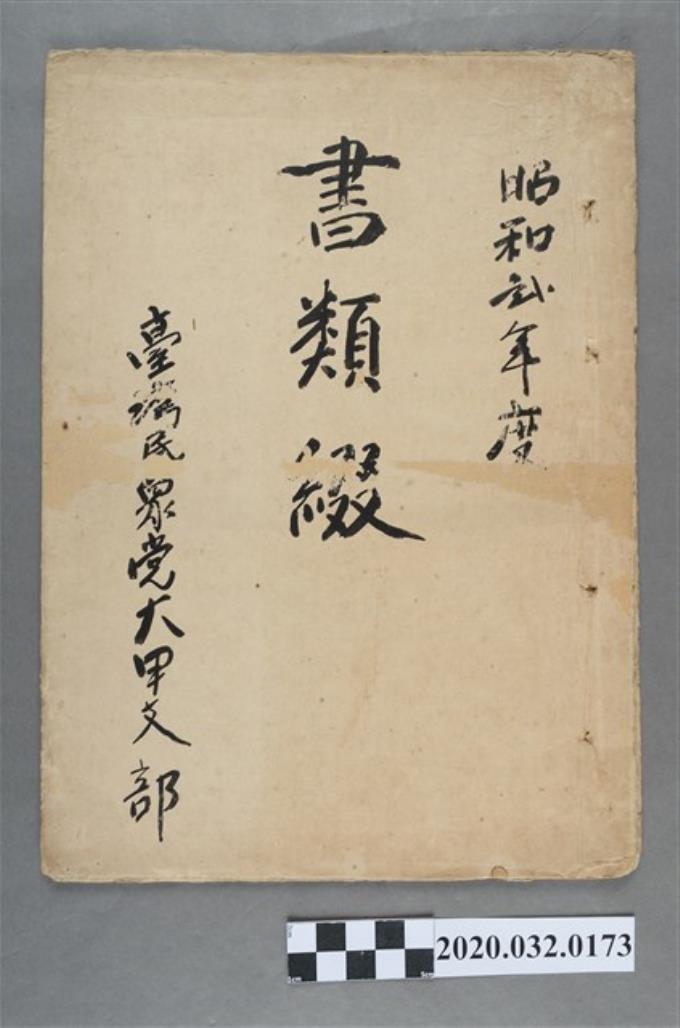 昭和弍年度
書類綴
臺灣民眾党大甲支部
2020.032.0173